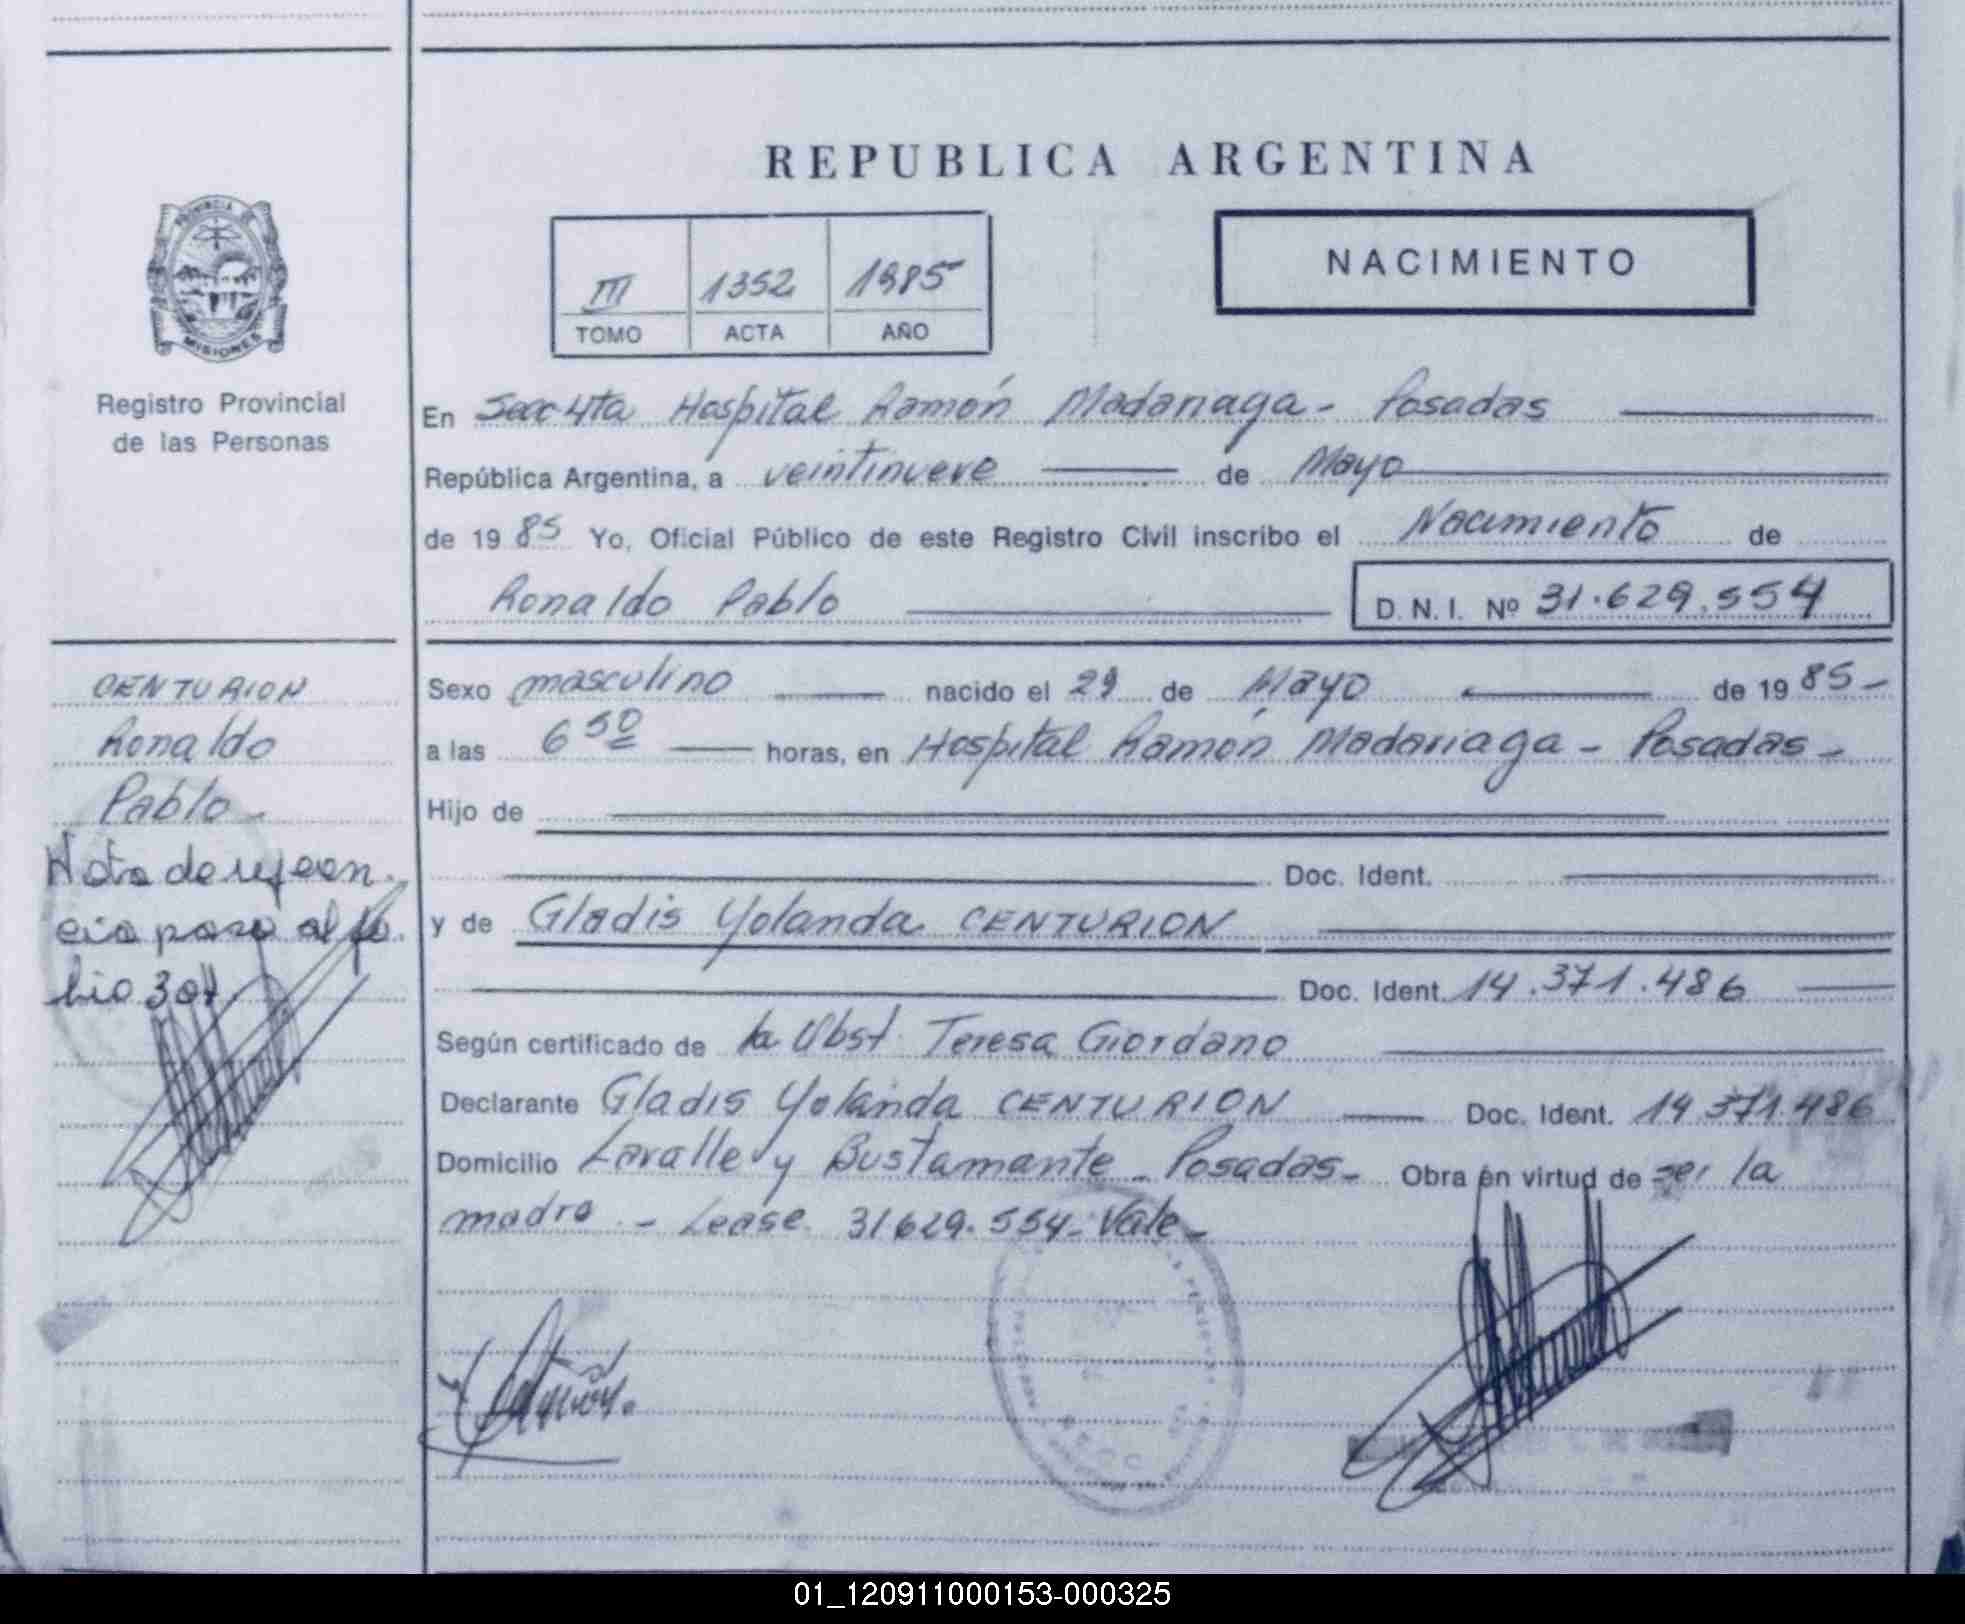 REPUBLICA ARGENTINA
PROVINCIA DE
MISIONES
Registro Provincial
de las Personas
III 1352 1985
TOMO ACTA AÑO
NACIMIENTO
En Secc 4ta Hospital Ramón Madariaga - Posadas
República Argentina, a veintinueve de Mayo
de 19 85 Yo, Oficial Público de este Registro Civil inscribo el Nacimiento de
Ronaldo Pablo D. N. I. Nº 31.629.554
CENTURION
Ronaldo
Pablo -
Nota de referen
cia pasa al fo
lio 307
Sexo masculino nacido el 29 de Mayo de 19 85 -
a las 6 50 horas, en Hospital Ramón Madariaga - Posadas -
Hijo de
Doc. Ident.
y de Gladis Yolanda CENTURION
Doc. Ident. 14.371.486
Según certificado de la Obst. Teresa Giordano
Declarante Gladis Yolanda CENTURION Doc. Ident. 14 371.486
Domicilio Lavalle y Bustamante - Posadas - Obra en virtud de ser la
madre - Lease 31629.554 - Vale -
01_120911000153-000325